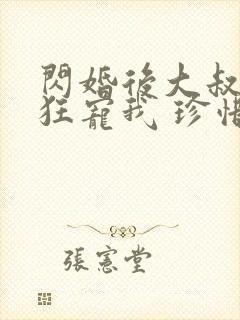 閃婚後大叔
狂寵我 珍惜
張憲堂